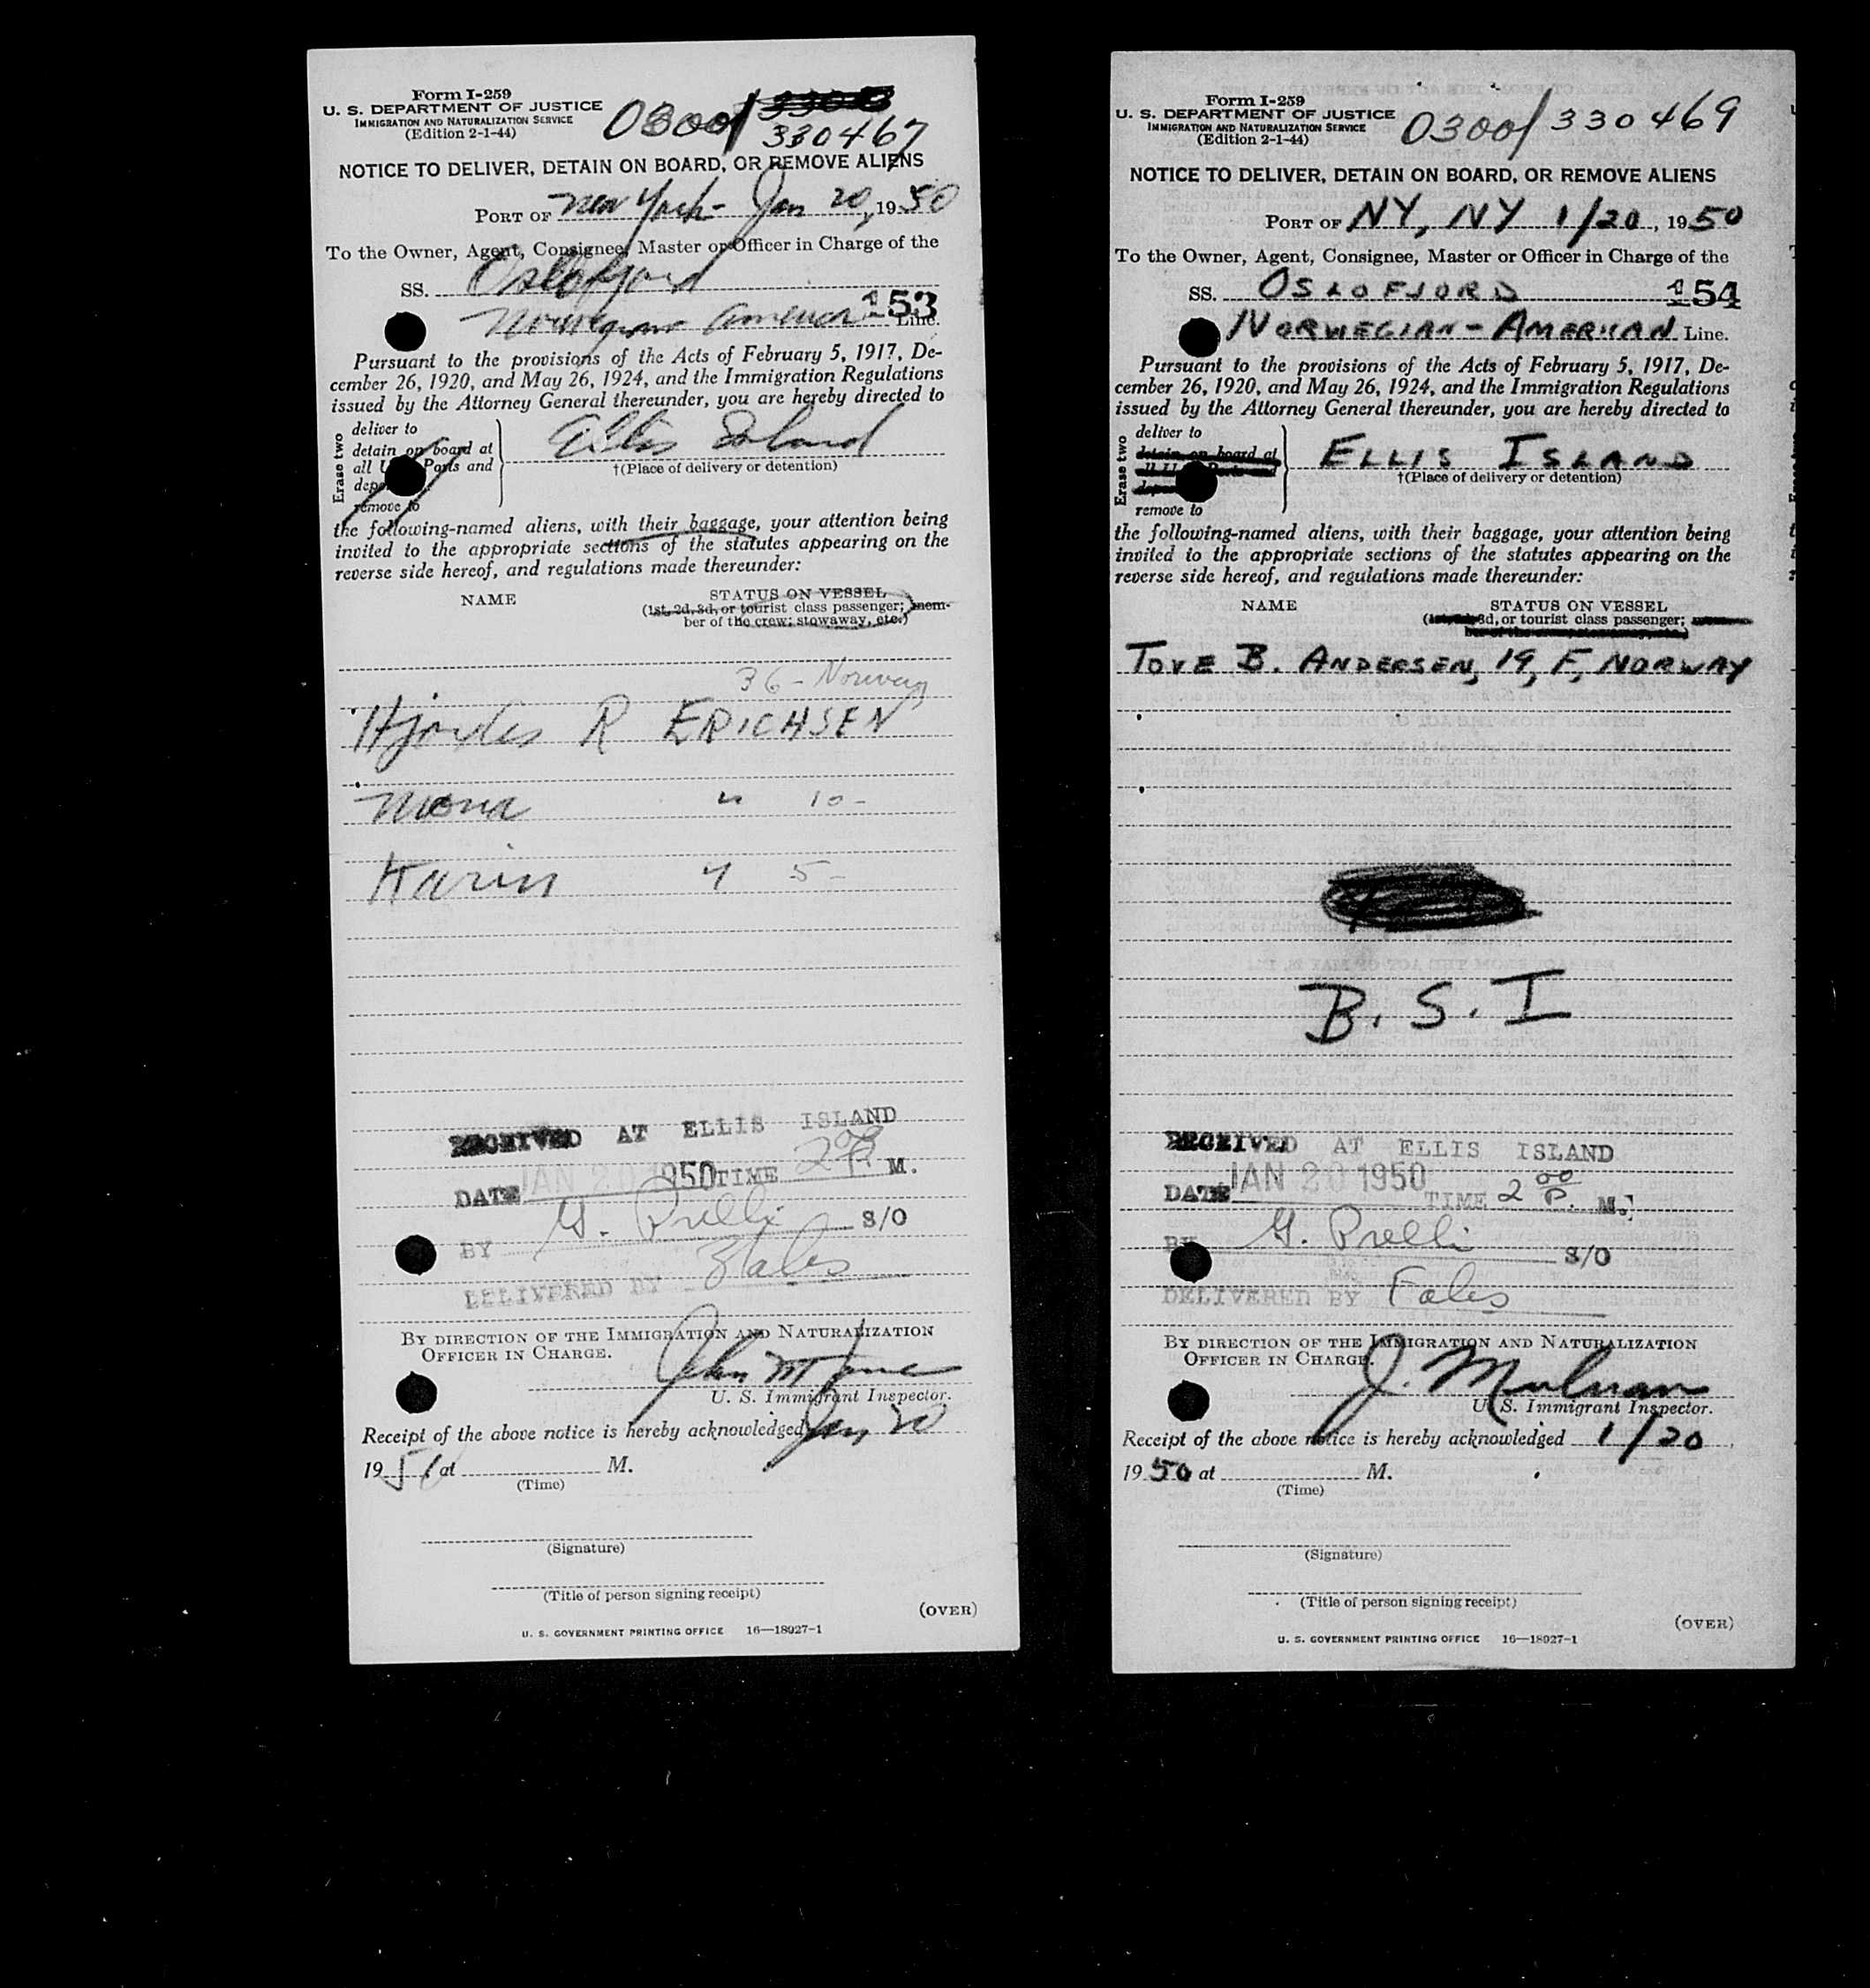 Form I-259
U. S. DEPARTMENT OF JUSTICE
IMMIGRATION AND NATURALIZATION SERVICE
(Edition 2-1-44)
0300/
330467
NOTICE TO DELIVER, DETAIN ON BOARD, OR REMOVE ALIENS
PORT OF New York - Jan 20, 1950
To the Owner, Agent, Consignee, Master or Officer in Charge of the
SS. Oslofjord
153
Norwegian America Line.
Pursuant to the provisions of the Acts of February 5, 1917, De-
cember 26, 1920, and May 26, 1924, and the Immigration Regulations
issued by the Attorney General thereunder, you are hereby directed to
Erase two
deliver to
detain on board at
all U Ports and
remove to
Ellis Island
†(Place of delivery or detention)
the following-named aliens, with their baggage, your attention being
invited to the appropriate sections of the statutes appearing on the
reverse side hereof, and regulations made thereunder:
NAME
STATUS ON VESSEL
(1st, 2d, 3d, or tourist class passenger; mem-
ber of the crew; stowaway, etc.)
36 - Norway
Hjordis R ERICHSEN
Mona " 10 -
Karin " 5 -
RECEIVED AT ELLIS ISLAND
DATE JAN 20 1950 TIME 2 00 P. M.
BY G. Prelli S/O
DELIVERED BY Fales
BY DIRECTION OF THE IMMIGRATION AND NATURALIZATION
OFFICER IN CHARGE.
John M
U. S. Immigrant Inspector.
Receipt of the above notice is hereby acknowledged Jan 20
1950 at M.
(Time)
(Signature)
(Title of person signing receipt)
(OVER)
U. S. GOVERNMENT PRINTING OFFICE 16—18927-1
Form I-259
U. S. DEPARTMENT OF JUSTICE
IMMIGRATION AND NATURALIZATION SERVICE
(Edition 2-1-44)
0300/330469
NOTICE TO DELIVER, DETAIN ON BOARD, OR REMOVE ALIENS
PORT OF NY, NY 1/20, 1950
To the Owner, Agent, Consignee, Master or Officer in Charge of the
SS. OSLOFJORD
154
NORWEGIAN - AMERICAN Line.
Pursuant to the provisions of the Acts of February 5, 1917, De-
cember 26, 1920, and May 26, 1924, and the Immigration Regulations
issued by the Attorney General thereunder, you are hereby directed to
Erase two
deliver to
detain on board at
remove to
ELLIS ISLAND
†(Place of delivery or detention)
the following-named aliens, with their baggage, your attention being
invited to the appropriate sections of the statutes appearing on the
reverse side hereof, and regulations made thereunder:
NAME
STATUS ON VESSEL
3d, or tourist class passenger;
TOVE B. ANDERSEN, 19, F, NORWAY
B. S. I
RECEIVED AT ELLIS ISLAND
DATE JAN 20 1950 TIME 2 00 P. M.
BY G. Prelli S/O
DELIVERED BY Fales
BY DIRECTION OF THE IMMIGRATION AND NATURALIZATION
OFFICER IN CHARGE.
J.
U. S. Immigrant Inspector.
Receipt of the above notice is hereby acknowledged 1/20
1950 at M.
(Time)
(Signature)
(Title of person signing receipt)
(OVER)
U. S. GOVERNMENT PRINTING OFFICE 16—18927-1